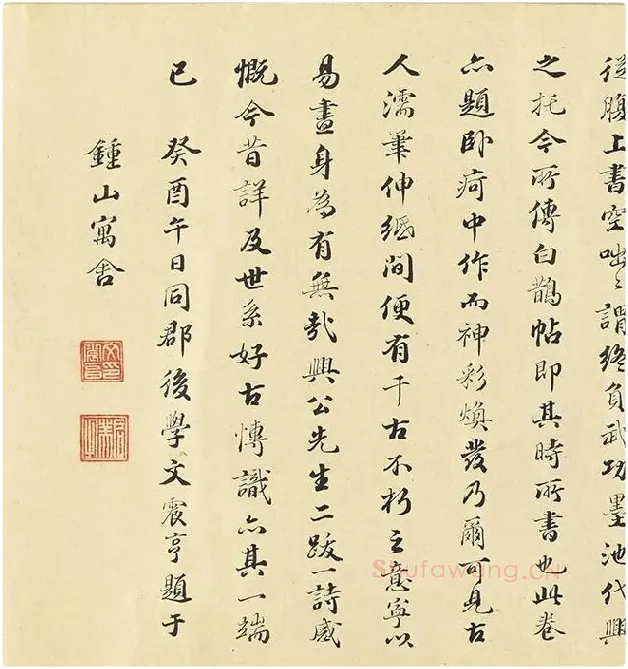 從腹上書空咄〻謂終負武功墨池代興
之托今所傳白鵲帖即其時所書也此卷
亦題卧疴中作而神彩煥發乃爾可見古
人濡筆伸紙間便有千古不朽之意寧以
易盡身為有無哉興公先生二跋一詩感
慨今昔詳及世系好古博識亦其一端
已 癸酉午日同郡後學文震亨題于
鍾山寓舍
Shufawang.CN